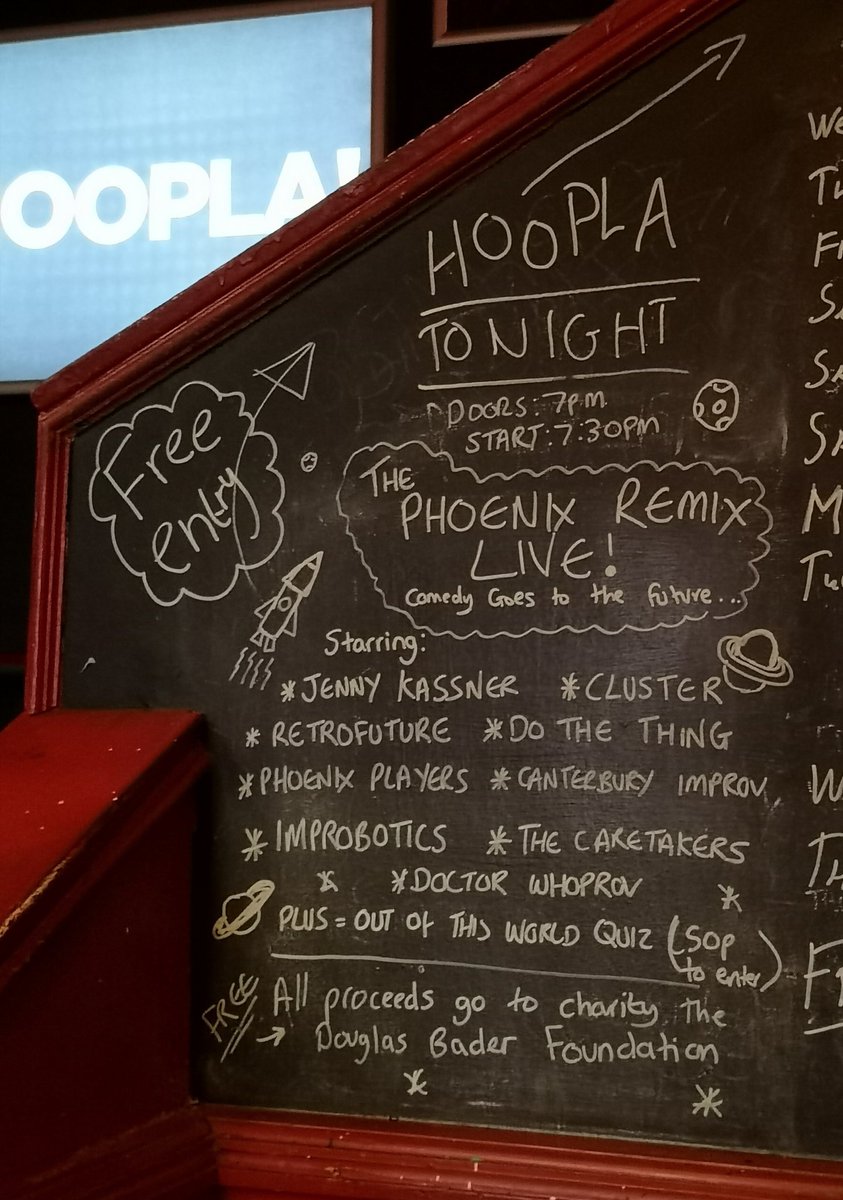 OOPLA!
HOOPLA
TONIGHT
DOORS: 7PM
START: 7.30PM
Free
entry
THE
PHOENIX REMIX
LIVE!
Comedy Goes to the future...
Starring:
* JENNY KASSNER * CLUSTER
* RETROFUTURE * DO THE THING
* PHOENIX PLAYERS * CANTERBURY IMPROV
* IMPROBOTICS * THE CARETAKERS
* DOCTOR WHOPROV
PLUS = OUT OF THIS WORLD QUIZ (50p
to enter)
FREE
All proceeds go to charity The
→ Douglas Bader Foundation
We
Tu
Fr
Sa
Sa
Sa
M
Tu
W
Th
Fr